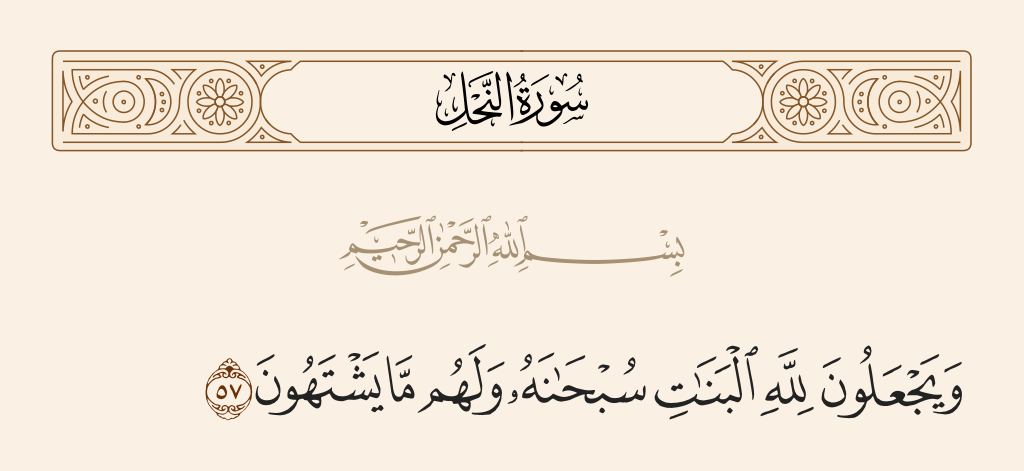 سُورَةُ النَّحْلِ
بِسْمِ ٱللَّهِ ٱلرَّحْمَٰنِ ٱلرَّحِيمِ
وَيَجْعَلُونَ لِلَّهِ ٱلْبَنَٰتِ سُبْحَٰنَهُۥ وَلَهُم مَّا يَشْتَهُونَ ٥٧